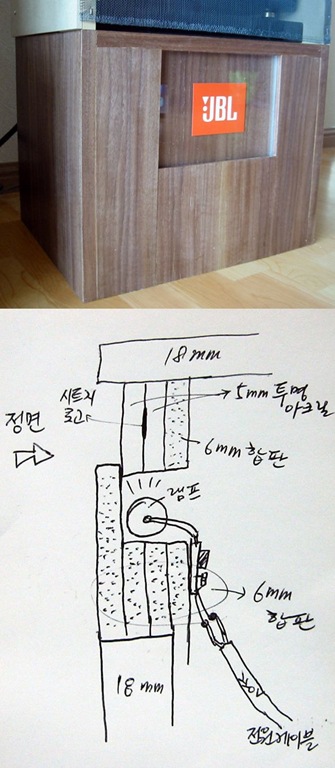 JBL
18mm
시트지
로고
5mm 투명
아크릴
정면
6mm 합판
램프
6mm
합판
18mm
전원케이블